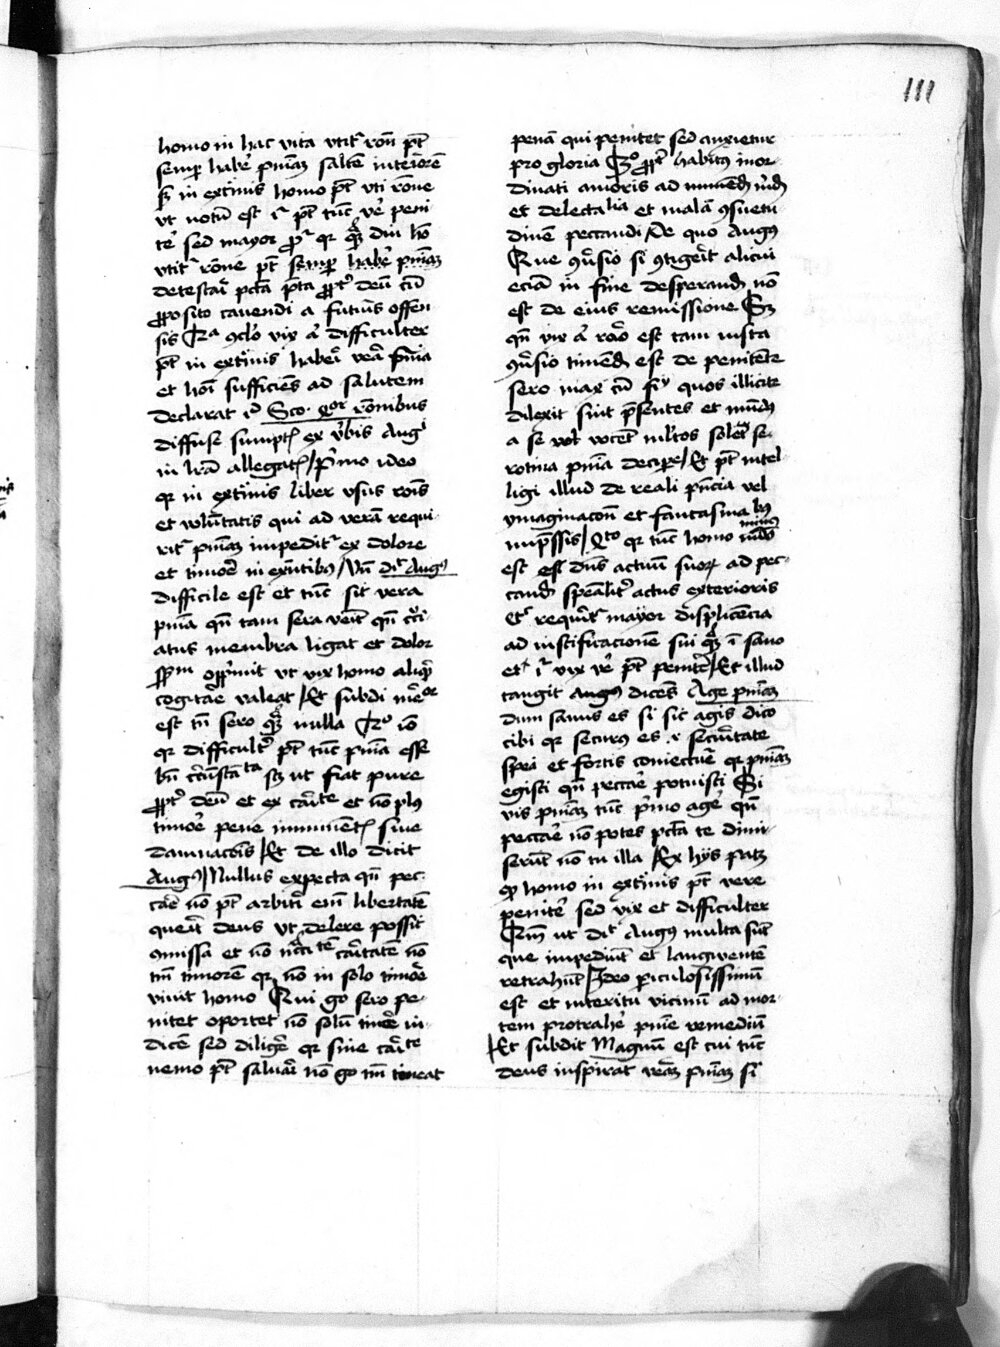 111
homo in hac vita vtit᷑ ron̄ pt̄
semꝑ habe᷑ pniāꝫ saltē interiorē
sꝫ in extīis homo pt̄ vti rōne
vt notū est ꝫ pt̄ tūc ve᷑ peni
te᷑ sed mayor qꝫ diu hō
vtit᷑ rōne pt̄ semꝑ habe᷑ pniāꝫ
detestāi pctā ppt᷑ deū cū
ꝓposito cavendi a futuris offen
sis vix ꝫ difficulter
pt̄ in extīis haberi verā pniā
et hoī sufficiēs ad salutem
declarat Sco. rōnibus
diffuse sumptꝭ ex v᷑bis Augꝰ
in lrā allegatꝭ pͥmo ideo
qꝛ in extīis liber vsus rōis
et volūtatis qui ad verā requi
rit᷑ pniāꝫ impedit᷑ ex dolore
et timore in extībꝰ vn̄ dīt Augꝰ
difficile est et tūc sit vera
pniā qn̄ tam sera venit qn̄ cͬci
atus membra ligat et dolor
oppͥmit vt vix homo aliqͥd
cogitare valeat Et subdi
est tn̄ sero qꝫ nulla
qꝛ difficultꝰ pt̄ tūc pniā esse
bn̄ scꝫ vt fiat pure
ppt᷑ deū et ex caritᵉ et nō plꝰ
timore pene imminētꝭ sine
damnacōis Et de illo dicit
Augꝰ Nullus expecta qn̄ pec
care nō pt̄ arbitrͥ em̄ libertatē
querit deus vt delere possit
ꝯmissa et nō caritatē nō
tm̄ timorē qꝛ nō in solo timore
viuit homo Qui go sero pe
nitet oportet nō solū timere iu
dicē sed diligere qꝛ sine caritᵉ
nemo pt̄ saluari nō go tm̄ timeat
penā qui penitet sed anxietur
pro gloria ppt᷑ habitū inor
dinati amoris ad
et delectalia et malā ꝯsuetu
dinē peccandi De quo Augꝰ
Que ꝯuͥsio si ꝯtigerit alicui
eciā in fine desperandū nō
est de eius remissione Sꝫ
qn̄ vix ꝫ raro est tam iusta
ꝯuͥsio timendū est de penitētē
sero max cū quos illicite
dilexit sint pͥsentes et mūdꝰ
a se vocet ml̄tos solet se
rotina pniā decipe Et pt̄ intel
ligi illud de reali pn̄cia vel
ymaginacōn et fantasma bꝰ
impͥssis qꝛ tūc homo minꝰ
est dn̄s actuū suoꝝ ad pec
candū actus exterioris
requirit᷑ mayor displicēcia
ad iustificacionē sui qꝫ ī sano
et vix ve᷑ pt̄ penitere Et illud
tangit Augꝰ dicēs Age pniāꝫ
dum sanus es si sic agis dico
tibi qꝛ securꝰ es securitate
spei et fortis qꝛ pniāꝫ
egisti qn̄ peccare potuisti Si
vis pniāꝫ tūc pͥmo age᷑ qn̄
peccare nō potes pctā te dimi
serūt nō tu illa Ex hijs patꝫ
qꝙ homo in extīis pt̄ vere
penite᷑ sed vix et difficulter
ut dīt Augꝰ multa sūt
que impediūt et langwentē
retrahūt Ideo ꝑiculosissimū
est et interitū vicinū ad mor
tem protrahe᷑ pnīe remediū
Et subdit Magnū est cui tūc
deus inspirat verāꝫ pniāꝫ si